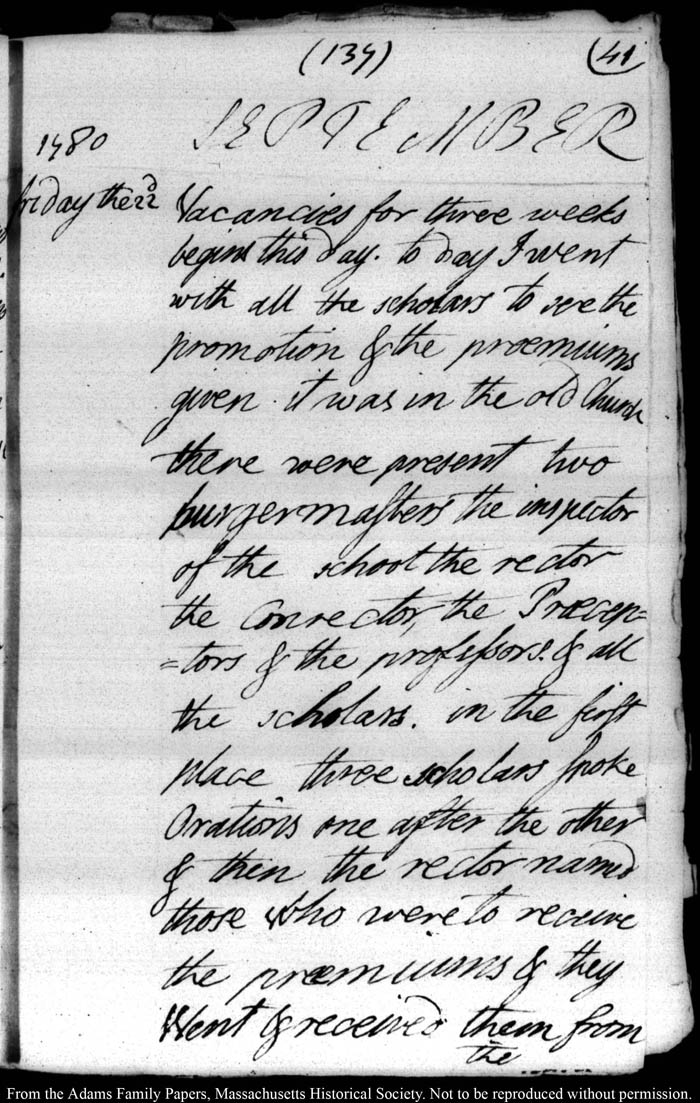 (137) (41
SEPTEMBER
1780
friday the 22d
Vacancies for three weeks
begins this day. to day I went
with all the scholars to see the
promotion & the proemiums
given it was in the old Church
there were present two
burgermasters the inspector
of the school the rector
the Conrector, the Præcep=
=tors & the professors. & all
the scholars. in the first
place three scholars spoke
Orations one after the other
& then the rector named
those who were to receive
the præmiums & they
Went & received them from
the
From the Adams Family Papers, Massachusetts Historical Society. Not to be reproduced without permission.